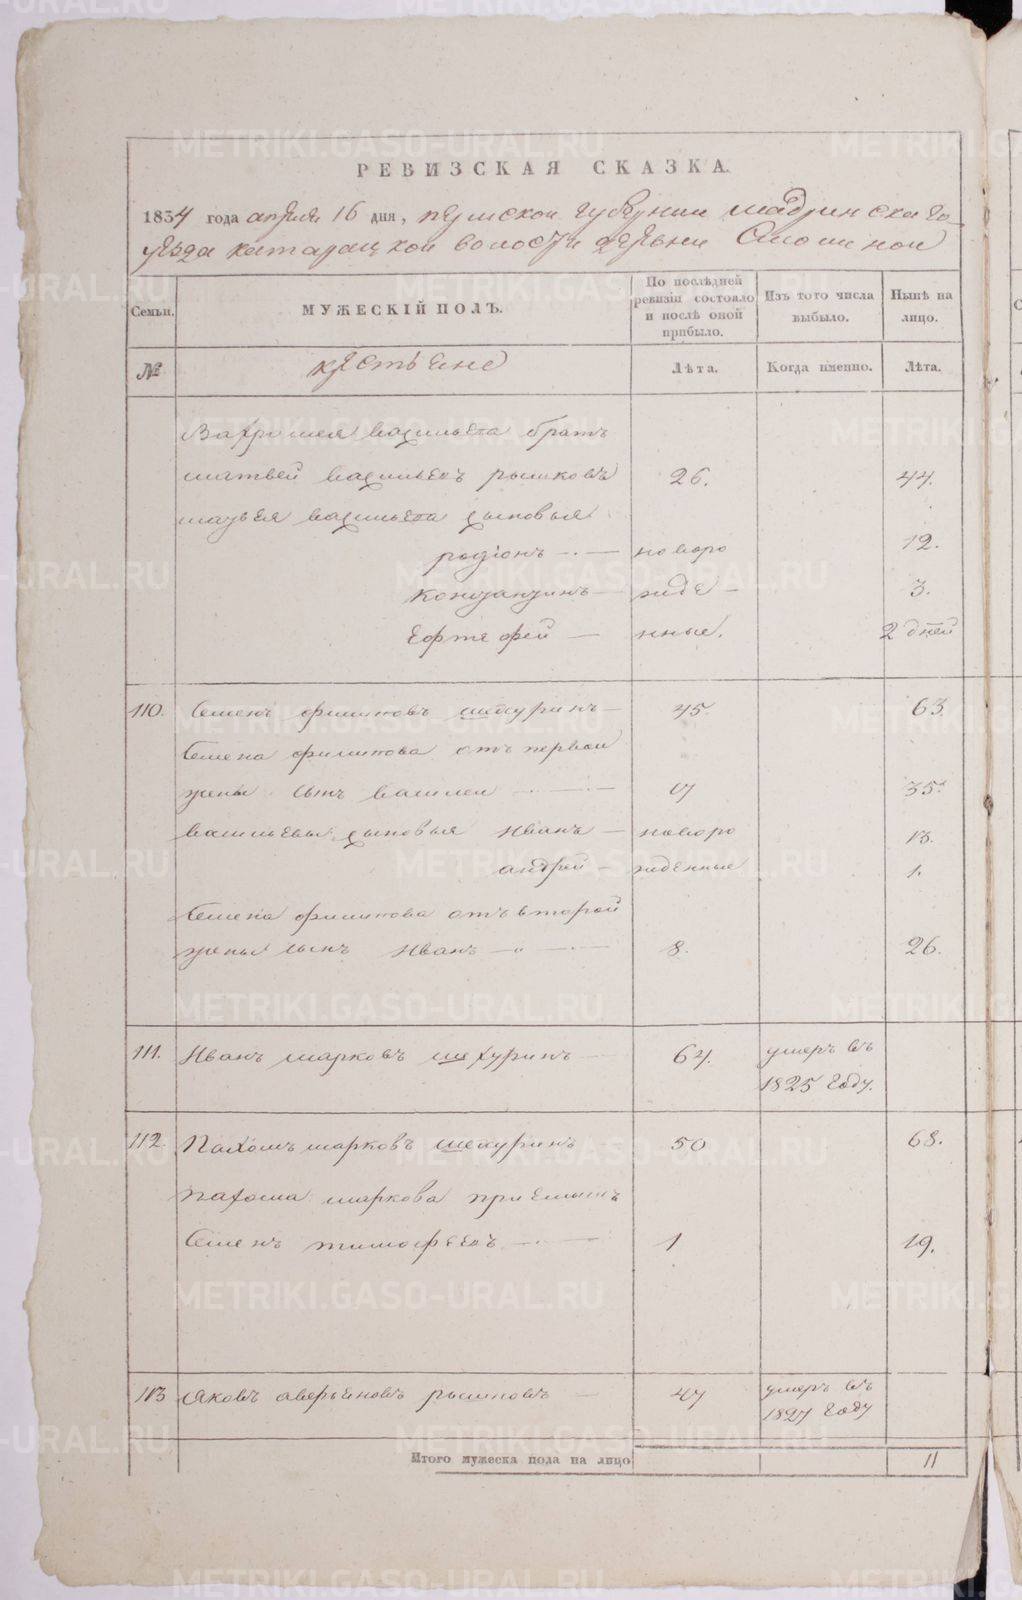 РЕВИЗСКАЯ СКАЗКА.
1834 года апреля 16 дня, пермской губернии шадринскаго
уезда катарацкой волости деревни
Семьи.
МУЖЕСКІЙ ПОЛЪ.
По послѣдней ревизіи состояло и послѣ оной прибыло.
Изъ того числа выбыло.
Нынѣ на лицо.
№
крестьяне
Лѣта.
Когда именно.
Лѣта.
Вахромея васильева братъ
матвей васильевъ рычковъ 26. 44.
матвея васильева сыновья
родіонъ — новоро 12.
Констянтинъ — жде - 3.
Ефтефей — нные. 2 дней
110. Семенъ филиповъ шехуринъ — 45. 63.
Семена филипова отъ первой
жены сынъ василей — 17 35.
васильевы сыновья Иванъ — новоро 13.
андрей — жденные 1.
Семена филипова отъ второй
жены сынъ Иванъ — 8. 26.
111. Иванъ марковъ шехуринъ — 64. умеръ въ
1825 Году.
112. Пахомъ марковъ шехуринъ 50 68.
пахома маркова приемышъ
Семенъ тимофеевъ — 1 19.
113 Яковъ аверьеновъ — 47 умеръ въ
1827 Году
Итого мужеска пола на лицо 11
METRIKI.GASO-URAL.RU